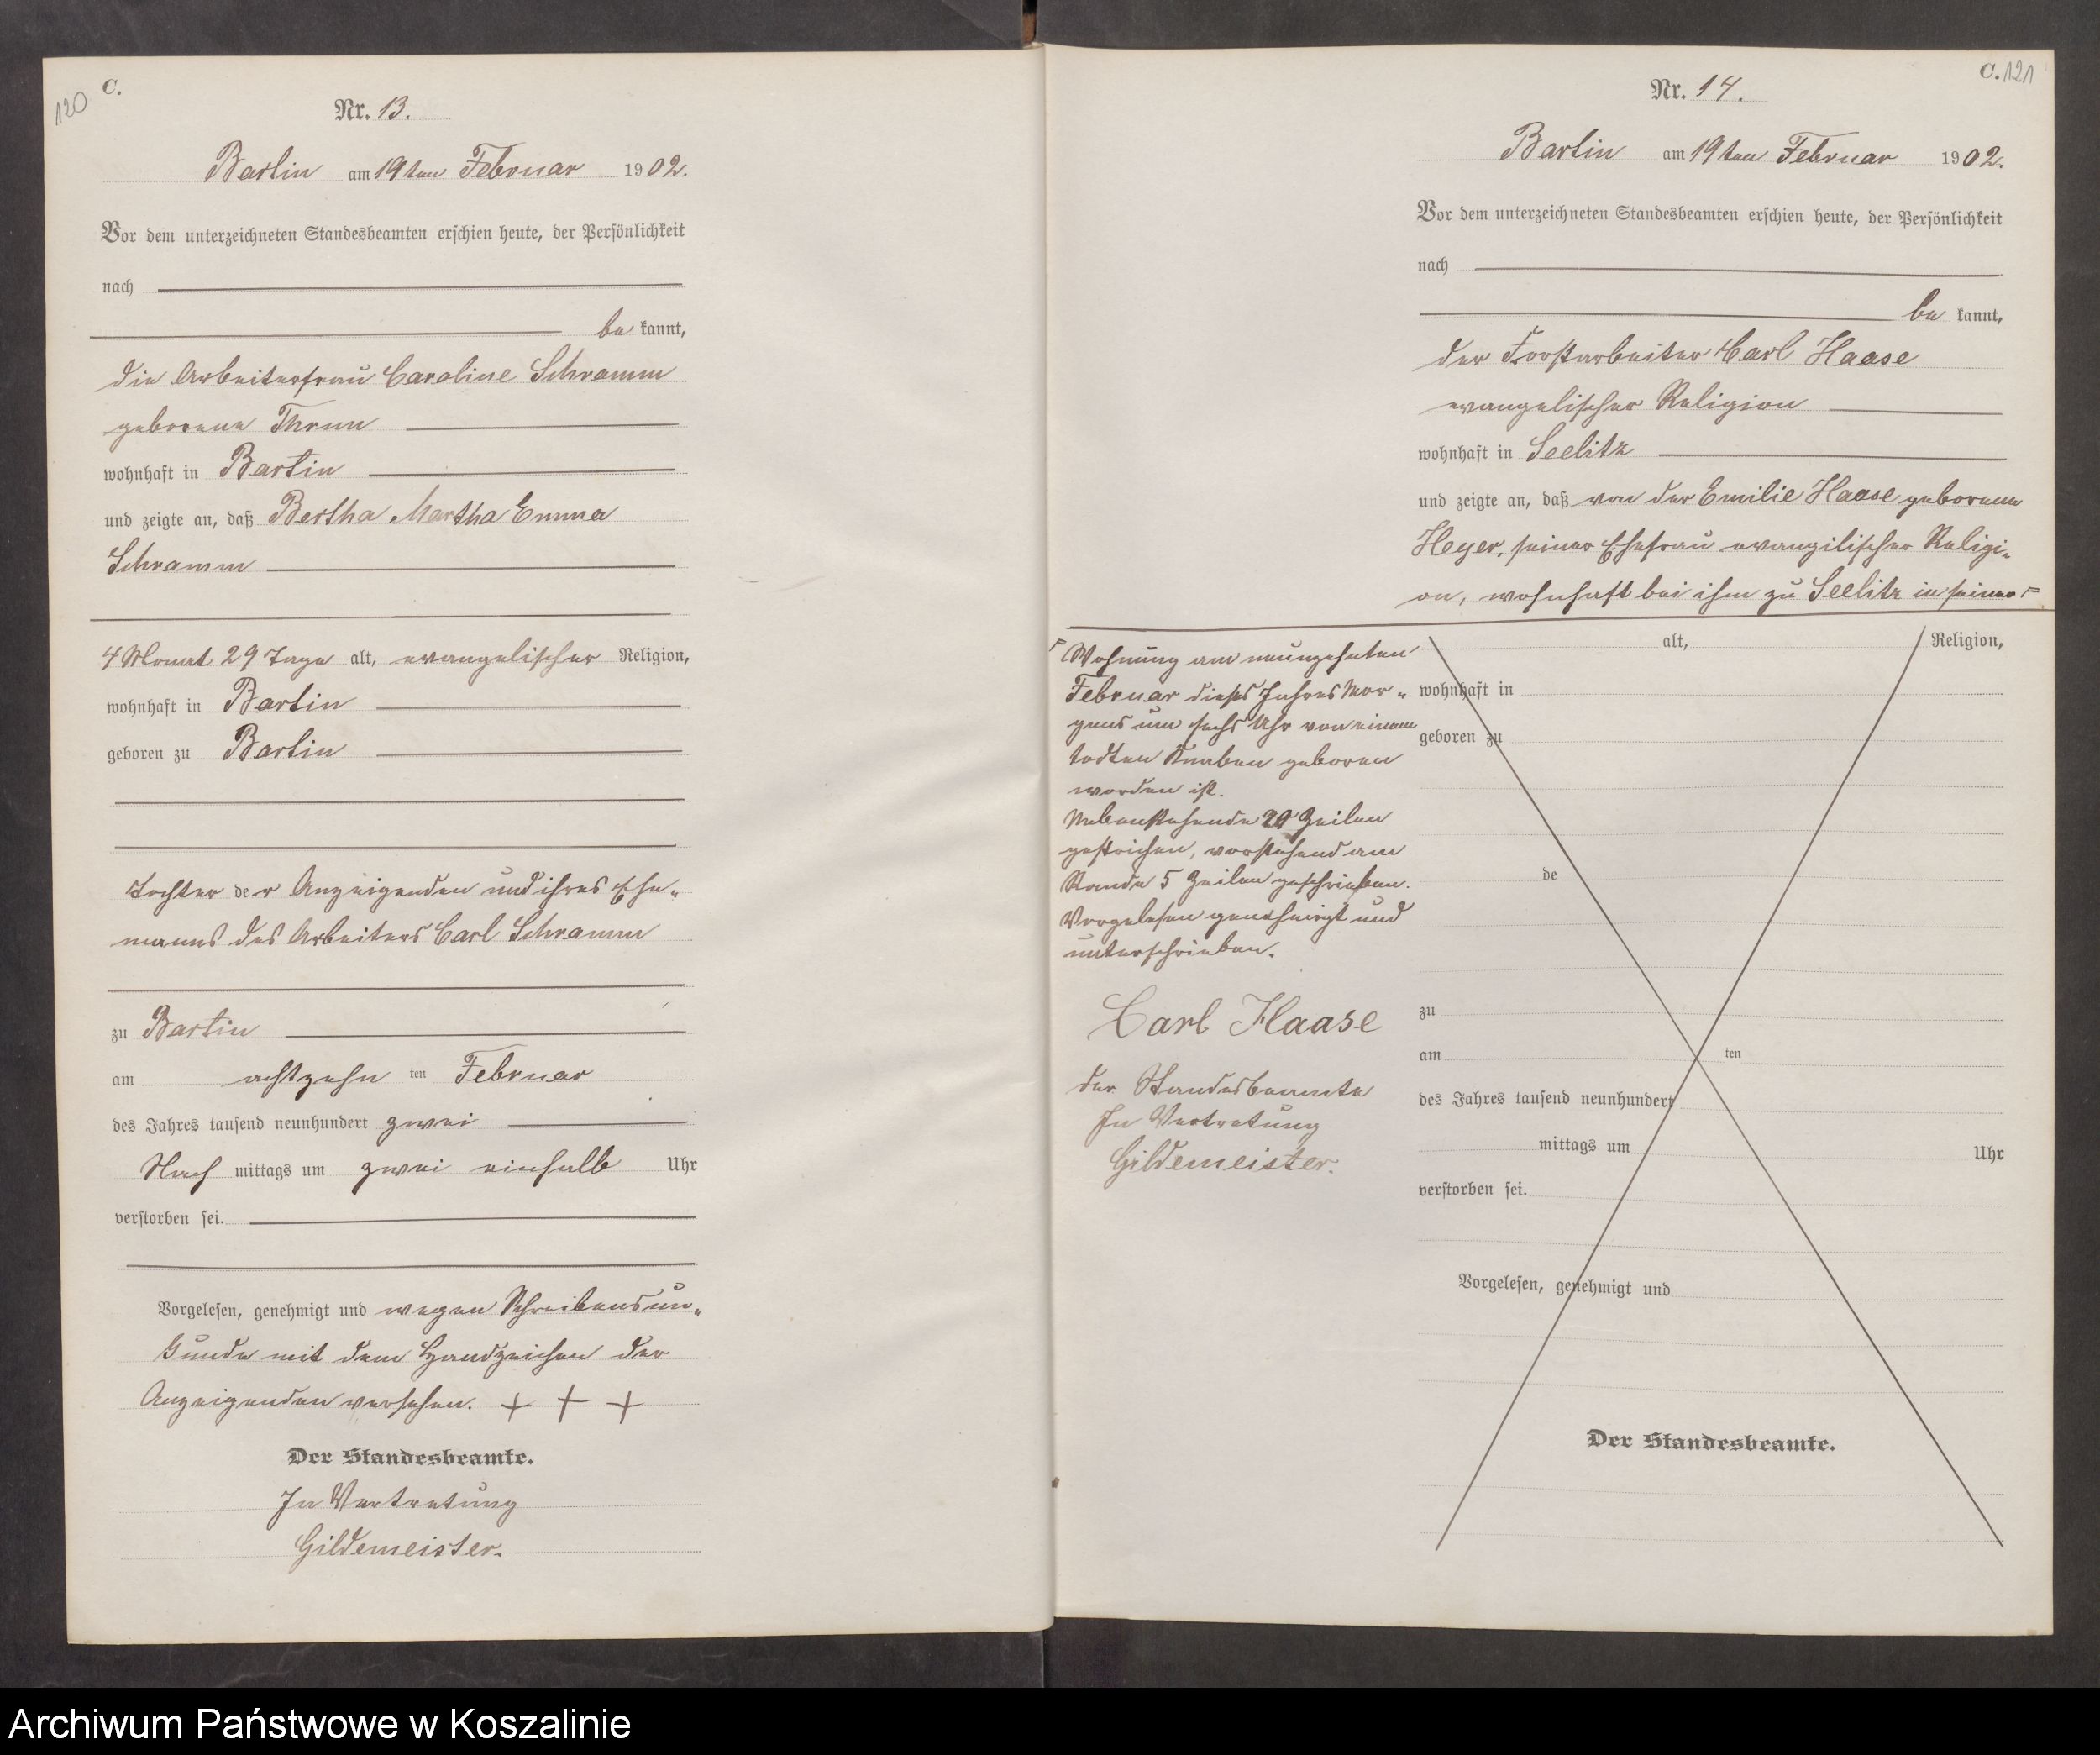 120
C.
Nr. 13.
Bartin am 19ten Februar 1902.
Vor dem unterzeichneten Standesbeamten erschien heute, der Persönlichkeit
nach
be kannt,
die Arbeiterfrau Caroline Schramm
geborene Thrun
wohnhaft in Bartin
und zeigte an, daß Bertha Martha Emma
Schramm
4 Monat 29 Tage alt, evangelischer Religion,
wohnhaft in Bartin
geboren zu Bartin
Tochter der Anzeigenden und ihres Ehe„
manns des Arbeiters Carl Schramm
zu Bartin
am achtzehn ten Februar
des Jahres tausend neunhundert zwei
Nach mittags um zwei einhalb Uhr
verstorben sei.
Vorgelesen, genehmigt und wegen Schreibensun„
kunde mit dem Handzeichen der
Anzeigenden versehen. + + +
Der Standesbeamte.
In Vertretung
Gildemeister.
C. 121
Nr. 14.
Bartin am 19ten Februar 1902.
Vor dem unterzeichneten Standesbeamten erschien heute, der Persönlichkeit
nach
be kannt,
der Forstarbeiter Carl Haase
evangelischer Religion
wohnhaft in Seelitz
und zeigte an, daß von der Emilie Haase geborene
Heyer, seiner Ehefrau evangilischer Religi„
on, wohnhaft bei ihm zu Seelitz in seiner
Wohnung am neunzehnten
Februar dieses Jahres Mor„
gens um sechs Uhr von einem
todten Knaben geboren
worden ist.
Nebenstehende Zeilen
gestrichen, vorstehend am
Rande 5 Zeilen geschrieben.
Vorgelesen genehmigt und
unterschrieben.
Carl Haase
der Standesbeamte
In Vertretung
Gildemeister.
alt, Religion,
wohnhaft in
geboren zu
de
zu
am ten
des Jahres tausend neunhundert
mittags um Uhr
verstorben sei.
Vorgelesen, genehmigt und
Der Standesbeamte.
Archiwum Państwowe w Koszalinie